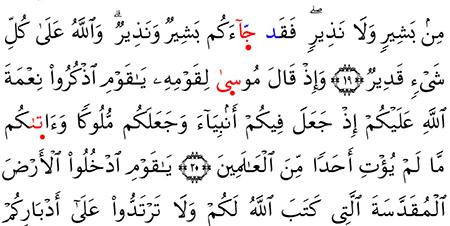 مِنۢ بَشِيرٍۢ وَلَا نَذِيرٍۢ ۖ فَقَد جَّآءَكُم بَشِيرٌۭ وَنَذِيرٌۭ ۗ وَٱللَّهُ عَلَىٰ كُلِّ
شَىْءٍۢ قَدِيرٌۭ ﴿١٩﴾ وَإِذْ قَالَ مُوسىٰ لِقَوْمِهِۦ يَـٰقَوْمِ ٱذْكُرُوا۟ نِعْمَةَ
ٱللَّهِ عَلَيْكُمْ إِذْ جَعَلَ فِيكُمْ أَنۢبِيَآءَ وَجَعَلَكُم مُّلُوكًۭا وَءَاتىٰكُم
مَّا لَمْ يُؤْتِ أَحَدًۭا مِّنَ ٱلْعَـٰلَمِينَ ﴿٢٠﴾ يَـٰقَوْمِ ٱدْخُلُوا۟ ٱلْأَرْضَ
ٱلْمُقَدَّسَةَ ٱلَّتِى كَتَبَ ٱللَّهُ لَكُمْ وَلَا تَرْتَدُّوا۟ عَلَىٰٓ أَدْبَارِكُمْ